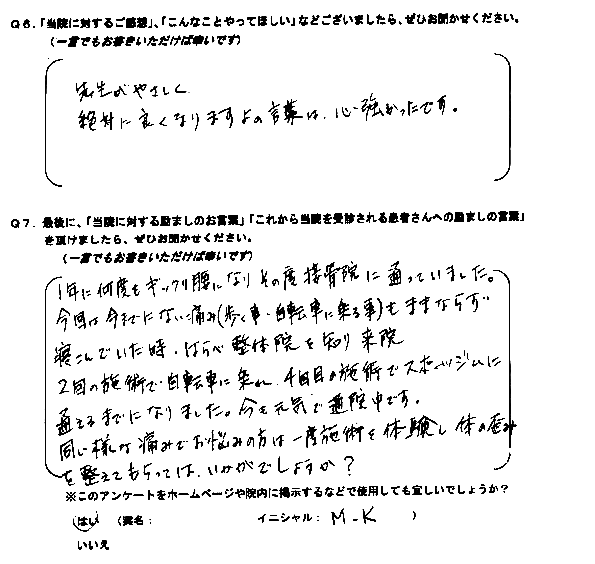 Q6.「当院に対するご感想」、「こんなことやってほしい」などございましたら、ぜひお聞かせください。
(一言でもお書きいただけば幸いです)
先生がやさしく
絶対に良くなりますよの言葉は、心強かったです。
Q7. 最後に、「当院に対する励ましのお言葉」「これから当院を受診される患者さんへの励ましの言葉」
を頂けましたら、ぜひお聞かせください。
(一言でもお書きいただけば幸いです)
1年に何度もギックリ腰になりその度接骨院に通っていました。
今回は今までにない痛み(歩く事・自転車に乗る事)もままならず
寝こんでいた時、整体院を知り来院
2回の施術で自転車に乗れ、4回目の施術でスポーツジムに
通えるまでになりました。今も元気で通院中です。
同じ様な痛みでお悩みの方は一度施術を体験し体の歪み
を整えてもらっては、いかがでしょうか?
※このアンケートをホームページや院内に掲示するなどで使用しても宜しいでしょうか?
はい (実名: イニシャル: M.K )
いいえ